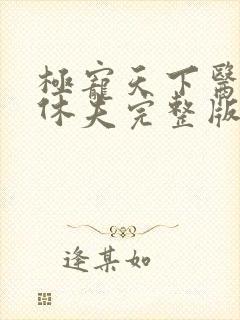 極寵天下醫
休夫完整版
逢某如